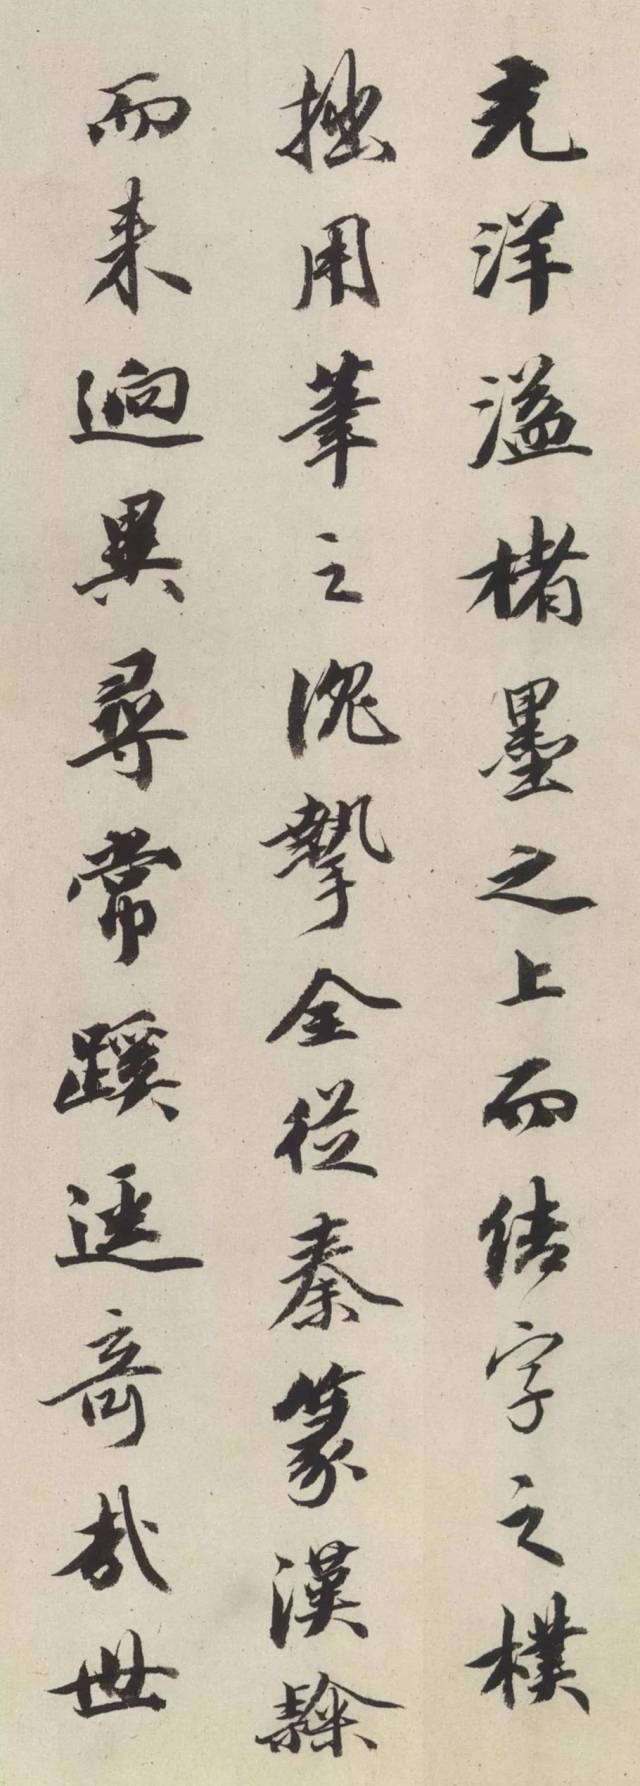 充洋溢楮墨之上而结字之樸
拙用筆之沉摯全從秦篆漢隸
而来迥異尋常蹊逕奇哉世